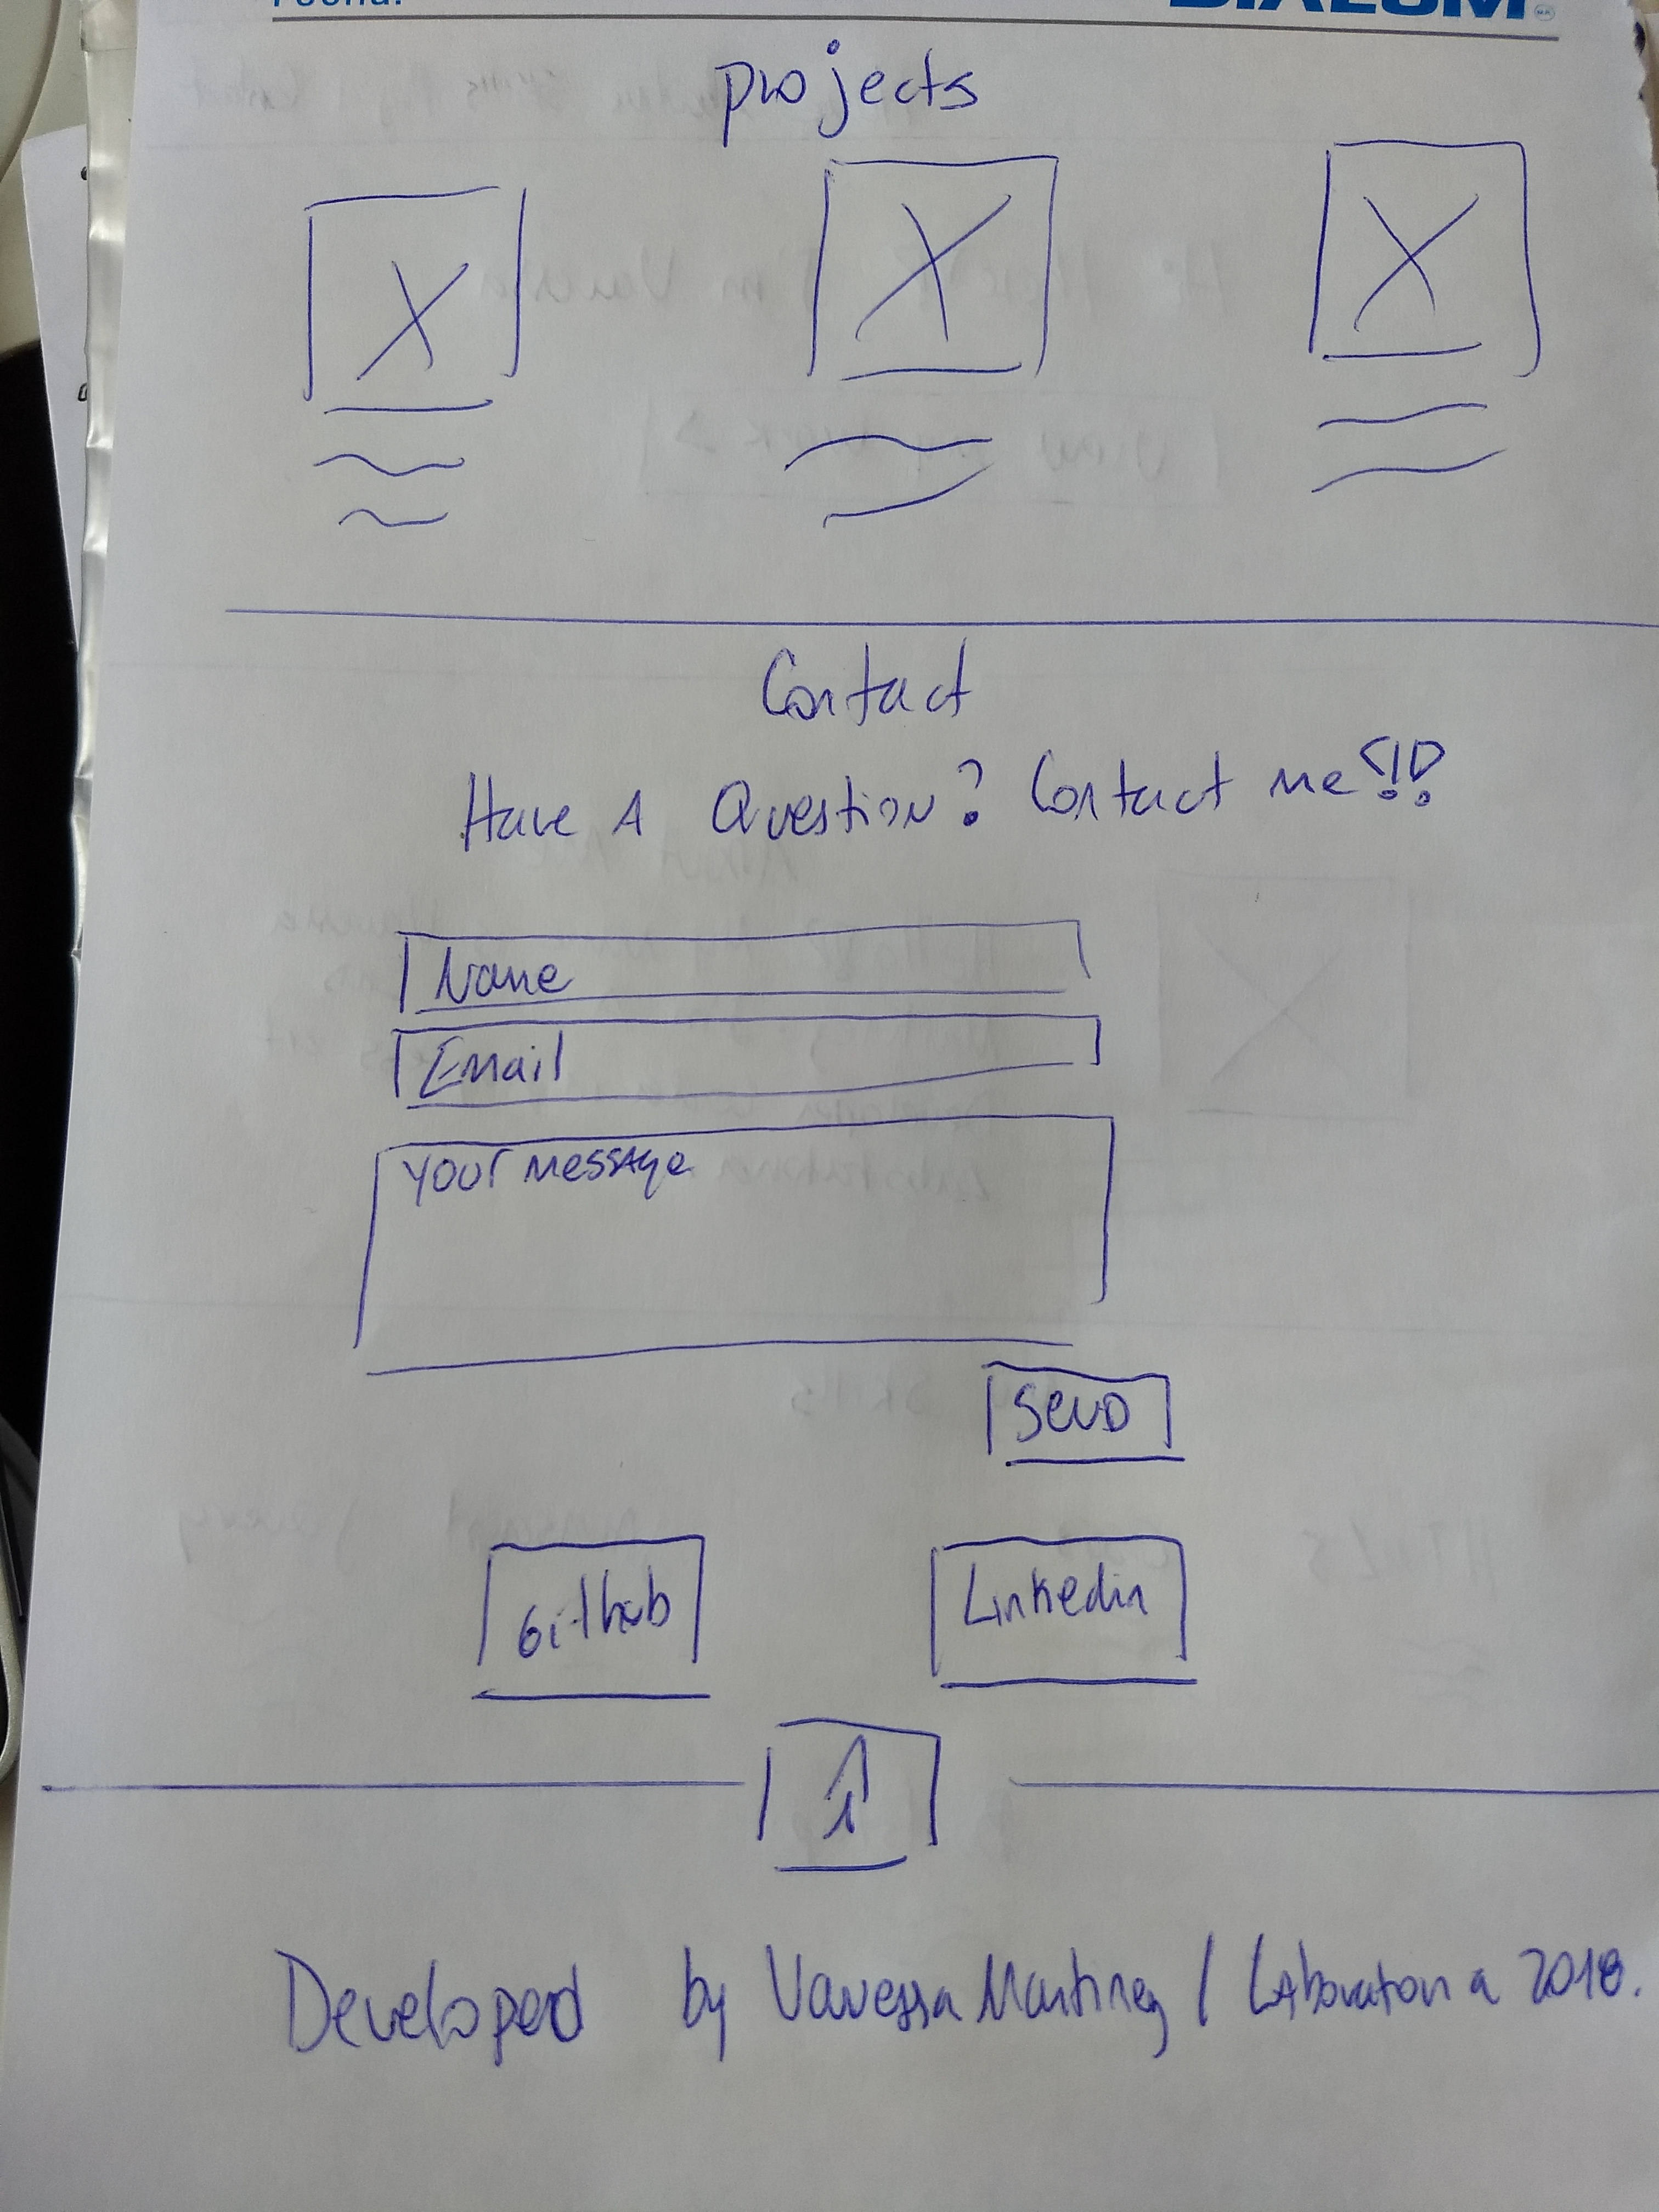 Fecha:
DIALUM
projects
Contact
Have A Question? Contact me!!
Name
Email
Your message
Send
Github
Linkedin
Developed by Vanessa Martinez / Laboratoria 2018.